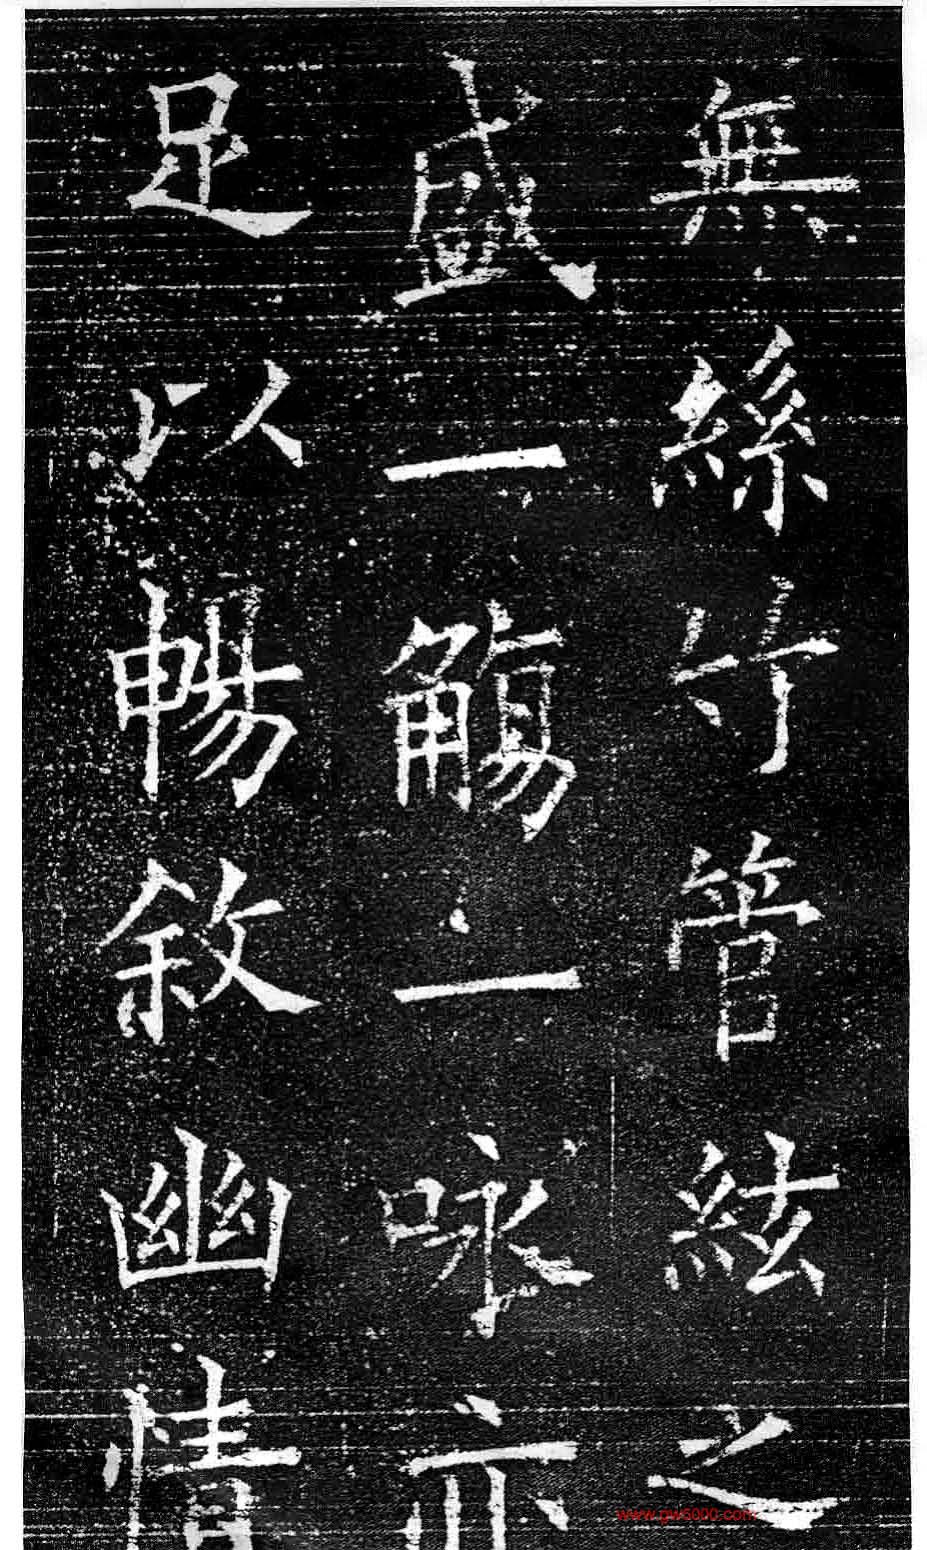 無絲竹管絃之
盛一觴一咏亦
足以暢敘幽情
www.gw5000.com